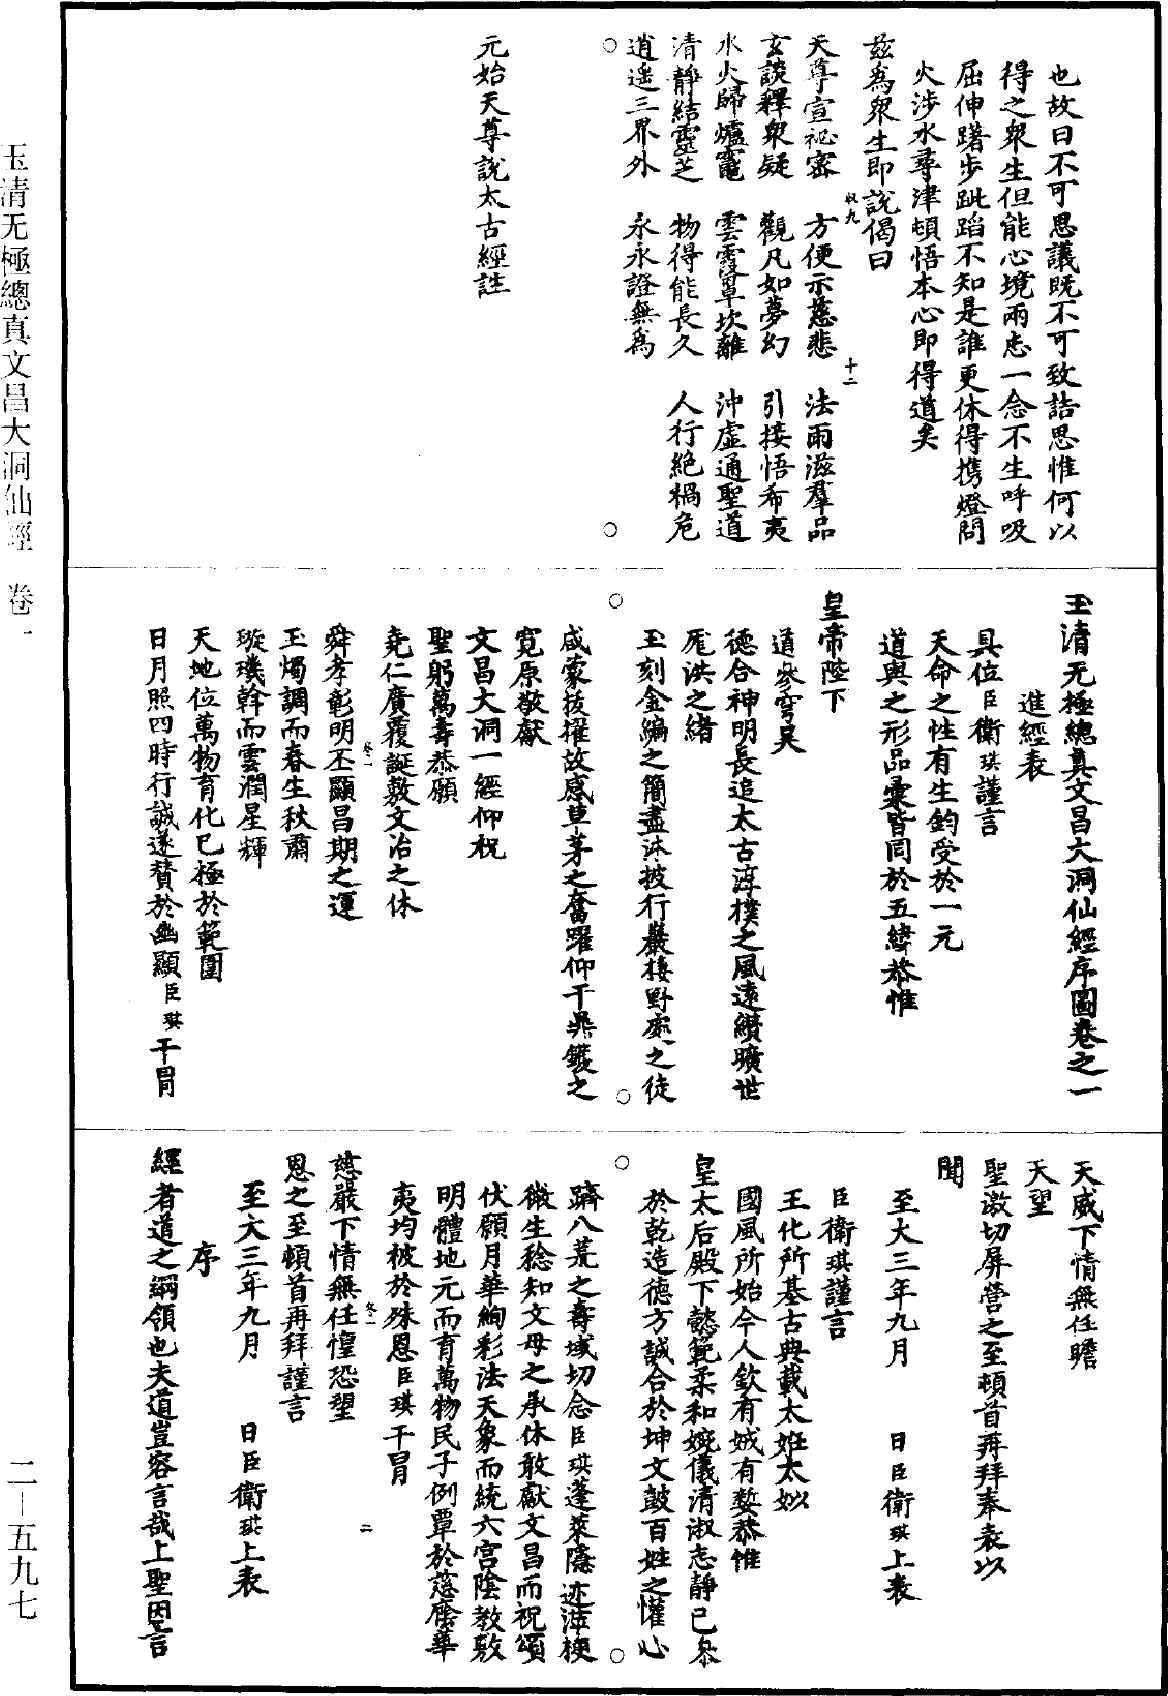 也故曰不可思議既不可致詰思惟何以
得之衆生但能心境兩忘一念不生呼吸
屈伸躇步跐蹈不知是誰更休得携燈問
火涉水尋津頓悟本心即得道矣
茲爲衆生即說偈曰
天尊宣祕密 方便示慈悲 法雨滋羣品
玄談釋衆疑 觀凡如夢幻 引接悟希夷
水火歸爐竈 雲霞罩坎離 沖虛通聖道
清靜結靈芝 物得能長久 人行絶禍危
逍遥三界外 永永證無爲
元始天尊說太古經註
玉清无極總真文昌大洞仙經序圖卷之一
進經表
具位臣衛琪謹言
天命之性有生鈞受於一元
道與之形品彙皆同於五緯恭惟
皇帝陛下
道參穹昊
德合神明長追太古淳樸之風遠纘曠世
厖洪之緒
玉刻金編之簡盡沐披行巖棲野處之徒
咸蒙拔擢故感草茅之奮躍仰干鼎鑊之
寬原敬獻
文昌大洞一經仰祝
聖躬萬壽恭願
堯仁廣覆誕敷文治之休
舜孝彰明丕顯昌期之運
玉燭調而春生秋肅
璇璣斡而雲潤星輝
天地位萬物育化已極於範圍
日月照四時行誠遂贊於幽顯臣琪干冒
天威下情無任瞻
天望
聖激切屏營之至頓首再拜奉表以
聞
至大三年九月 日臣衛琪上表
臣衛琪謹言
王化所基古典載太姙太姒
國風所始今人欽有娀有嫠恭惟
皇太后殿下懿範柔和婉儀清淑志靜已叅
於乾造德方誠合於坤文鼓百姓之懽心
躋八荒之壽域切念臣琪蓬萊隱迹萍梗
微生稔知文母之承休敢獻文昌而祝頌
伏願月華絢彩法天象而統六宮陰教敷
明體地元而育萬物民子例覃於蔭庥華
夷均被於殊恩臣琪干冒
慈嚴下情無任惶恐望
恩之至頓首再拜謹言
至大三年九月 日臣衛琪上表
序
經者道之綱領也夫道豈容言哉上聖因言
玉清无極總真文昌大洞仙經 卷一
二—五九七